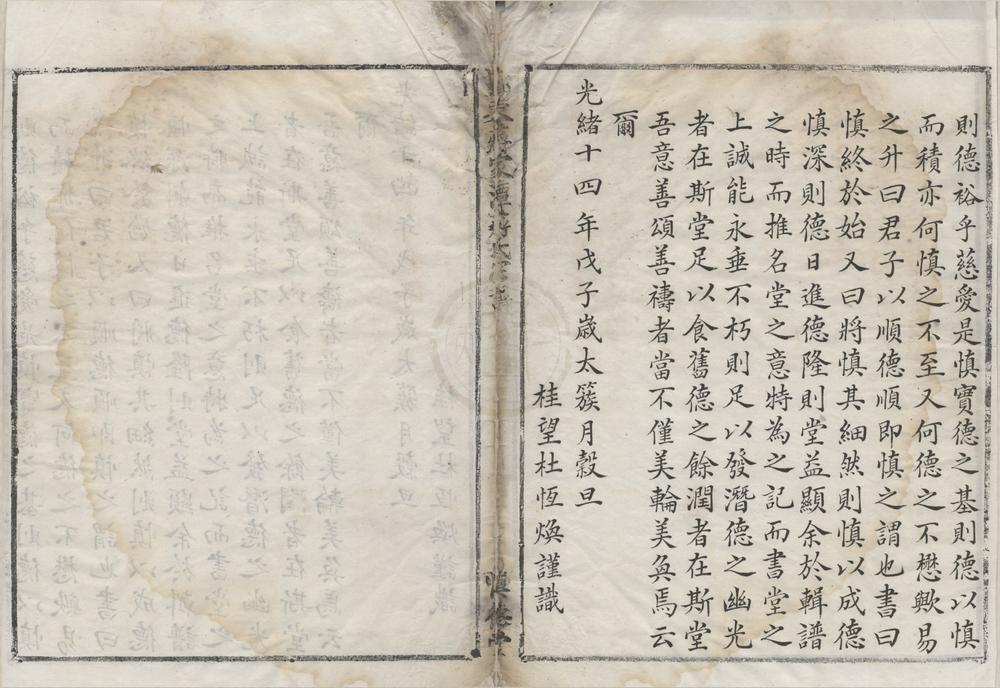 則德裕乎慈愛是慎實德之基則德以慎
而積亦何慎之不至又何德之不懋歟易
之升曰君子以順德順即慎之謂也書曰
慎終於始又曰將慎其細然則慎以成德
慎深則德日進德隆則堂益顯余於輯譜
之時而推名堂之意特為之記而書堂之
上誠能永垂不朽則足以發潛德之幽光
者在斯堂足以食舊德之餘潤者在斯堂
吾意善頌善禱者當不僅美輪美奐焉云
爾
光緒十四年戊子歲太簇月穀旦
桂望杜恆煥謹識
慎德堂